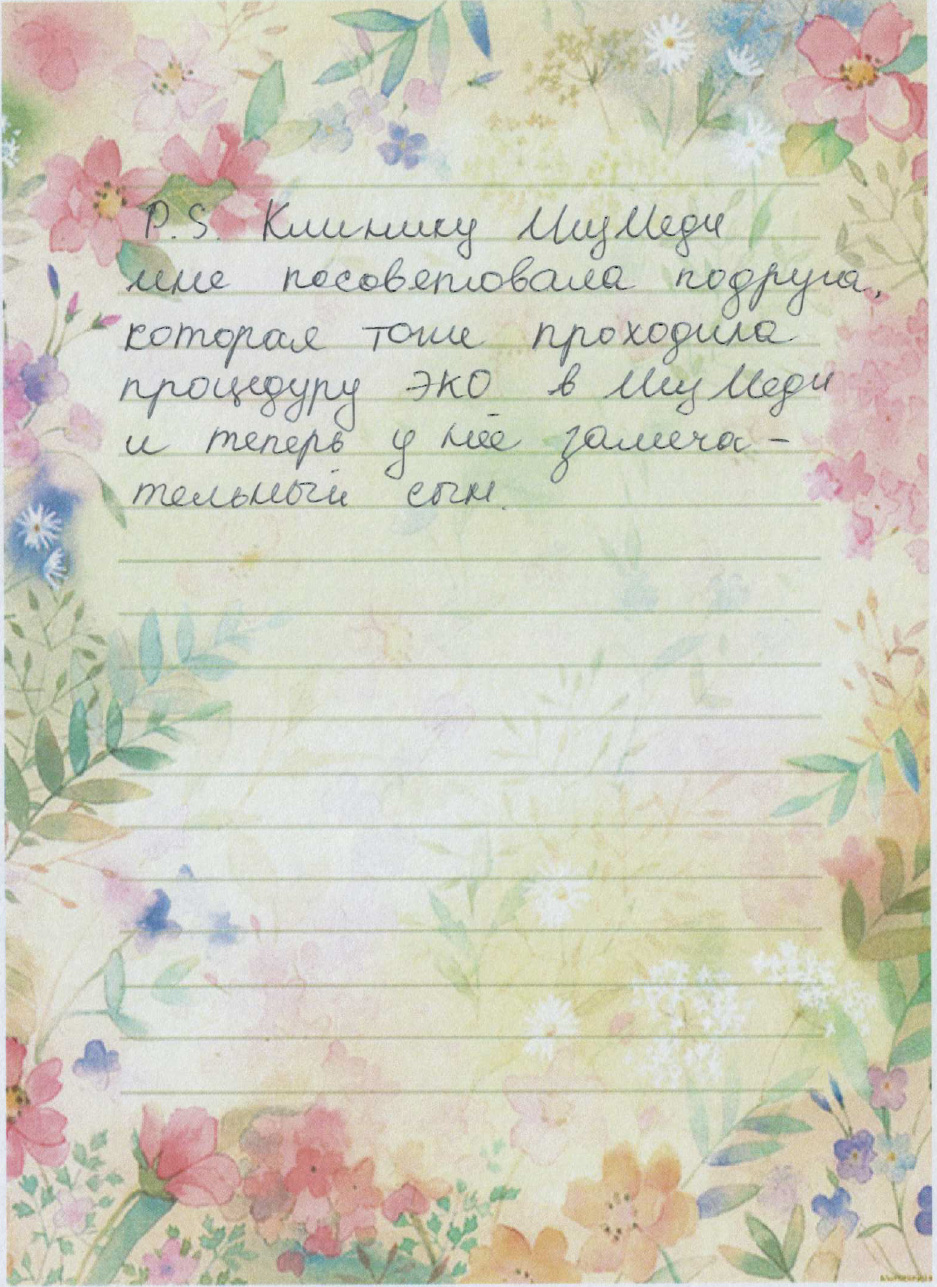 P.S. Клинику МизМеди
мне посоветовала подруга,
которая тоже проходила
процедуру ЭКО в МизМеди
и теперь у неё замеча-
тельный сын.